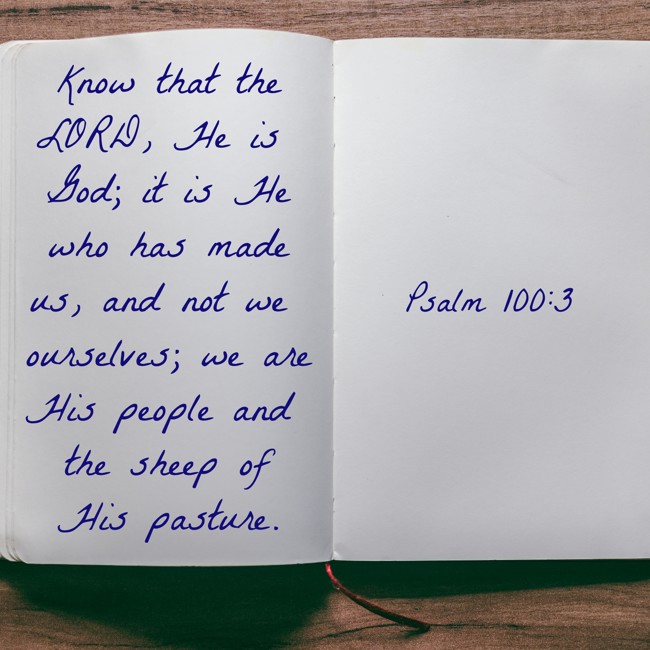 Know that the
LORD, He is
God; it is He
who has made
us, and not we
ourselves; we are
His people and
the sheep of
His pasture.
Psalm 100:3